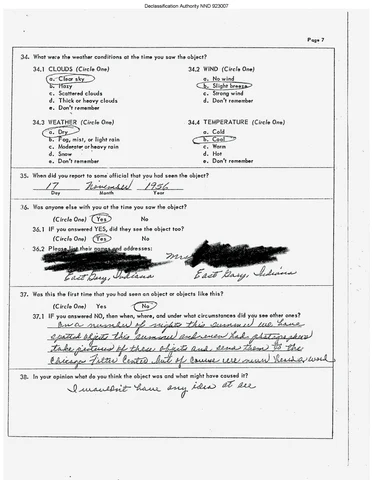 Declassification Authority NND 923007
Page 7
34. What were the weather conditions at the time you saw the object?
34.1 CLOUDS (Circle One) 34.2 WIND (Circle One)
a. Clear sky a. No wind
b. Hazy b. Slight breeze
c. Scattered clouds c. Strong wind
d. Thick or heavy clouds d. Don't remember
e. Don't remember
34.3 WEATHER (Circle One) 34.4 TEMPERATURE (Circle One)
a. Dry a. Cold
b. Fog, mist, or light rain b. Cool
c. Moderate or heavy rain c. Warm
d. Snow d. Hot
e. Don't remember e. Don't remember
35. When did you report to some official that you had seen the object?
17 November 1956
Day Month Year
36. Was anyone else with you at the time you saw the object?
(Circle One) Yes No
36.1 IF you answered YES, did they see the object too?
(Circle One) Yes No
36.2 Please list their names and addresses:
Mrs
East Gary, Indiana East Gary, Indiana
37. Was this the first time that you had seen an object or objects like this?
(Circle One) Yes No
37.1 IF you answered NO, then when, where, and under what circumstances did you see other ones?
on a number of nights this summer we have
spotted objects this summer and even had photographers
take pictures of these objects and send them to the
Chicago Filter Center but of course we never heard a word
38. In your opinion what do you think the object was and what might have caused it?
I wouldn't have any idea at all